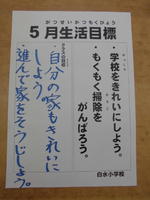 がつせいかつもくひょう
5月生活目標
・学校をきれいにしよう。
・もくもく掃除を
がんばろう。
クラスの目標
・自分の家もきれいに
しよう。
・進んで家をそうじしよう。
白水小学校